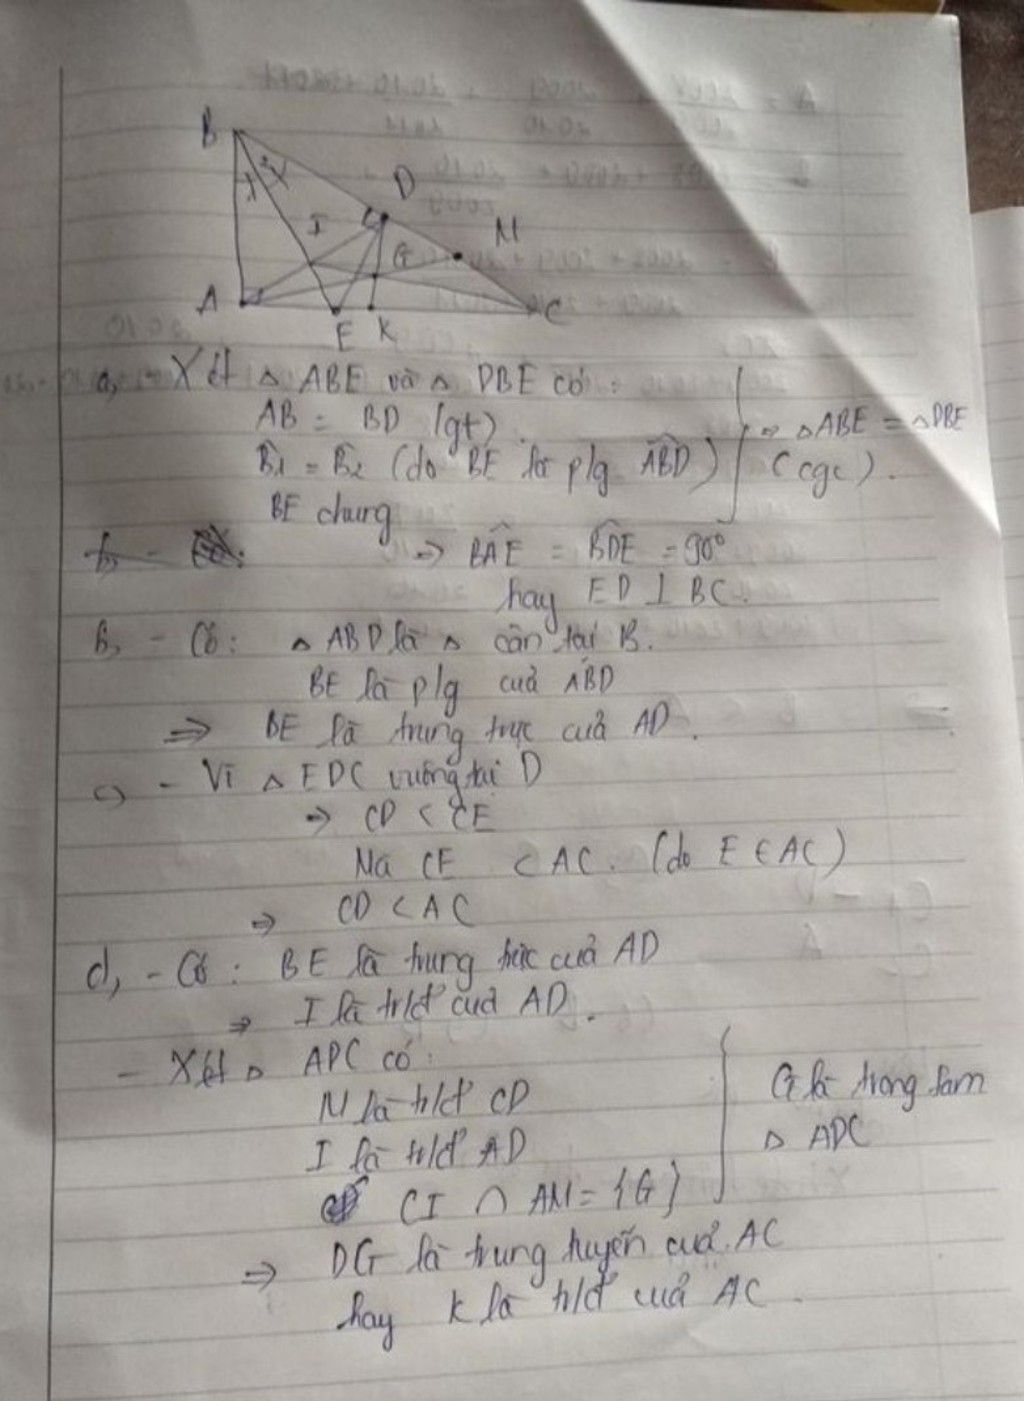 B
D
M
I
G
A
E
K
C
a, - Xét △ ABE và △ DBE có :
AB = BD (gt)
B̂1 = B̂2 (do BE là p/g ABD̂)
BE chung
⇒ △ABE = △DBE
(cgc).
⇒ BÂE = BD̂E = 90°
hay ED ⊥ BC.
b, - Có : △ ABD là △ cân tại B.
BE là p/g của ABD
⇒ BE là trung trực của AD.
c, - Vì △ EDC vuông tại D
⇒ CD < CE
Mà CE < AC. (do E ∈ AC)
⇒ CD < AC
d, - Có : BE là trung trực của AD
⇒ I là tr/đ' của AD.
- Xét △ ADC có :
M là tr/đ' CD
I là tr/đ' AD
CI ∩ AM = {G}
G là trong tam
△ ADC
⇒ DG là trung tuyến của AC
hay K là tr/đ' của AC.